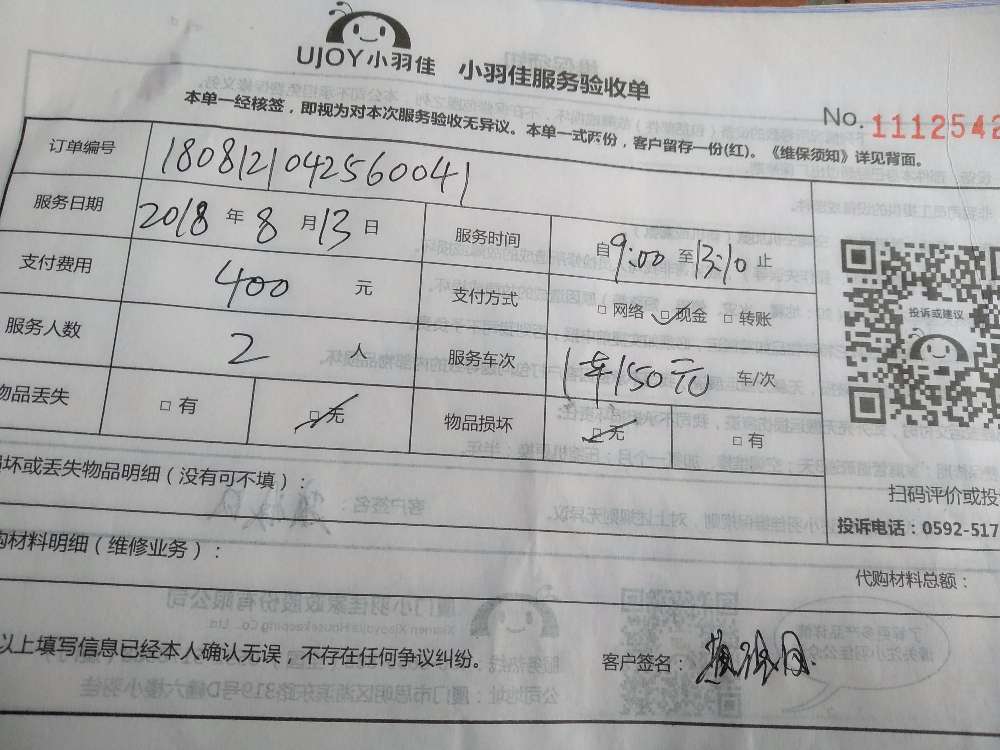 UJOY小羽佳 小羽佳服务验收单
本单一经核签，即视为对本次服务验收无异议。本单一式两份，客户留存一份(红)。《维保须知》详见背面。
No. 1112542
订单编号 1808121042560041
服务日期 2018 年 8 月 13 日 服务时间 自 9:00 至 13:10 止
支付费用 400 元 支付方式 □ 网络 □ 现金 □ 转账
服务人数 2 人 服务车次 1车150元 车/次
物品丢失 □ 有 □ 无 物品损坏 □ 无 □ 有
投诉或建议
坏或丢失物品明细（没有可不填）：
扫码评价或投
投诉电话：0592-517
购材料明细（维修业务）：
代购材料总额：
以上填写信息已经本人确认无误，不存在任何争议纠纷。 客户签名：